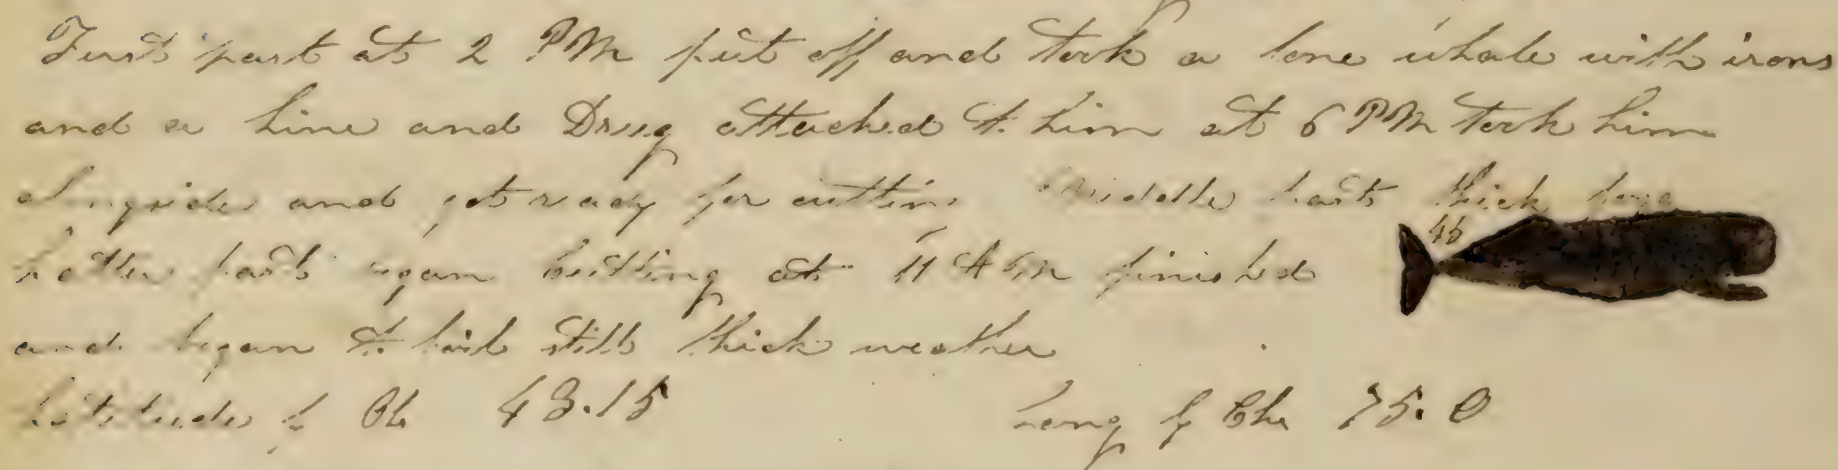 First part at 2 PM put off and took a lone whale with irons
and a line and Drug attached to him at 6 PM took him
alongside and got ready for cutting Middle part thick fog
Latter part began Cutting at 11 AM finished
46
and began to boil still thick weather
Latitude by Ob 43.15 Long by Chr 75.0